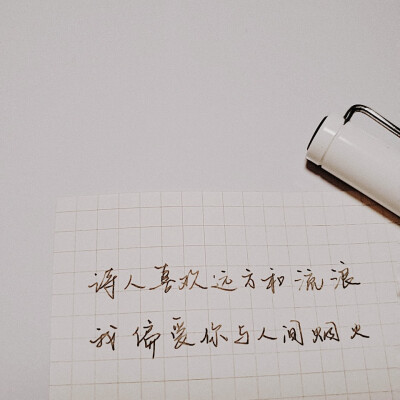 诗人喜欢远方和流浪
我偏爱你与人间烟火